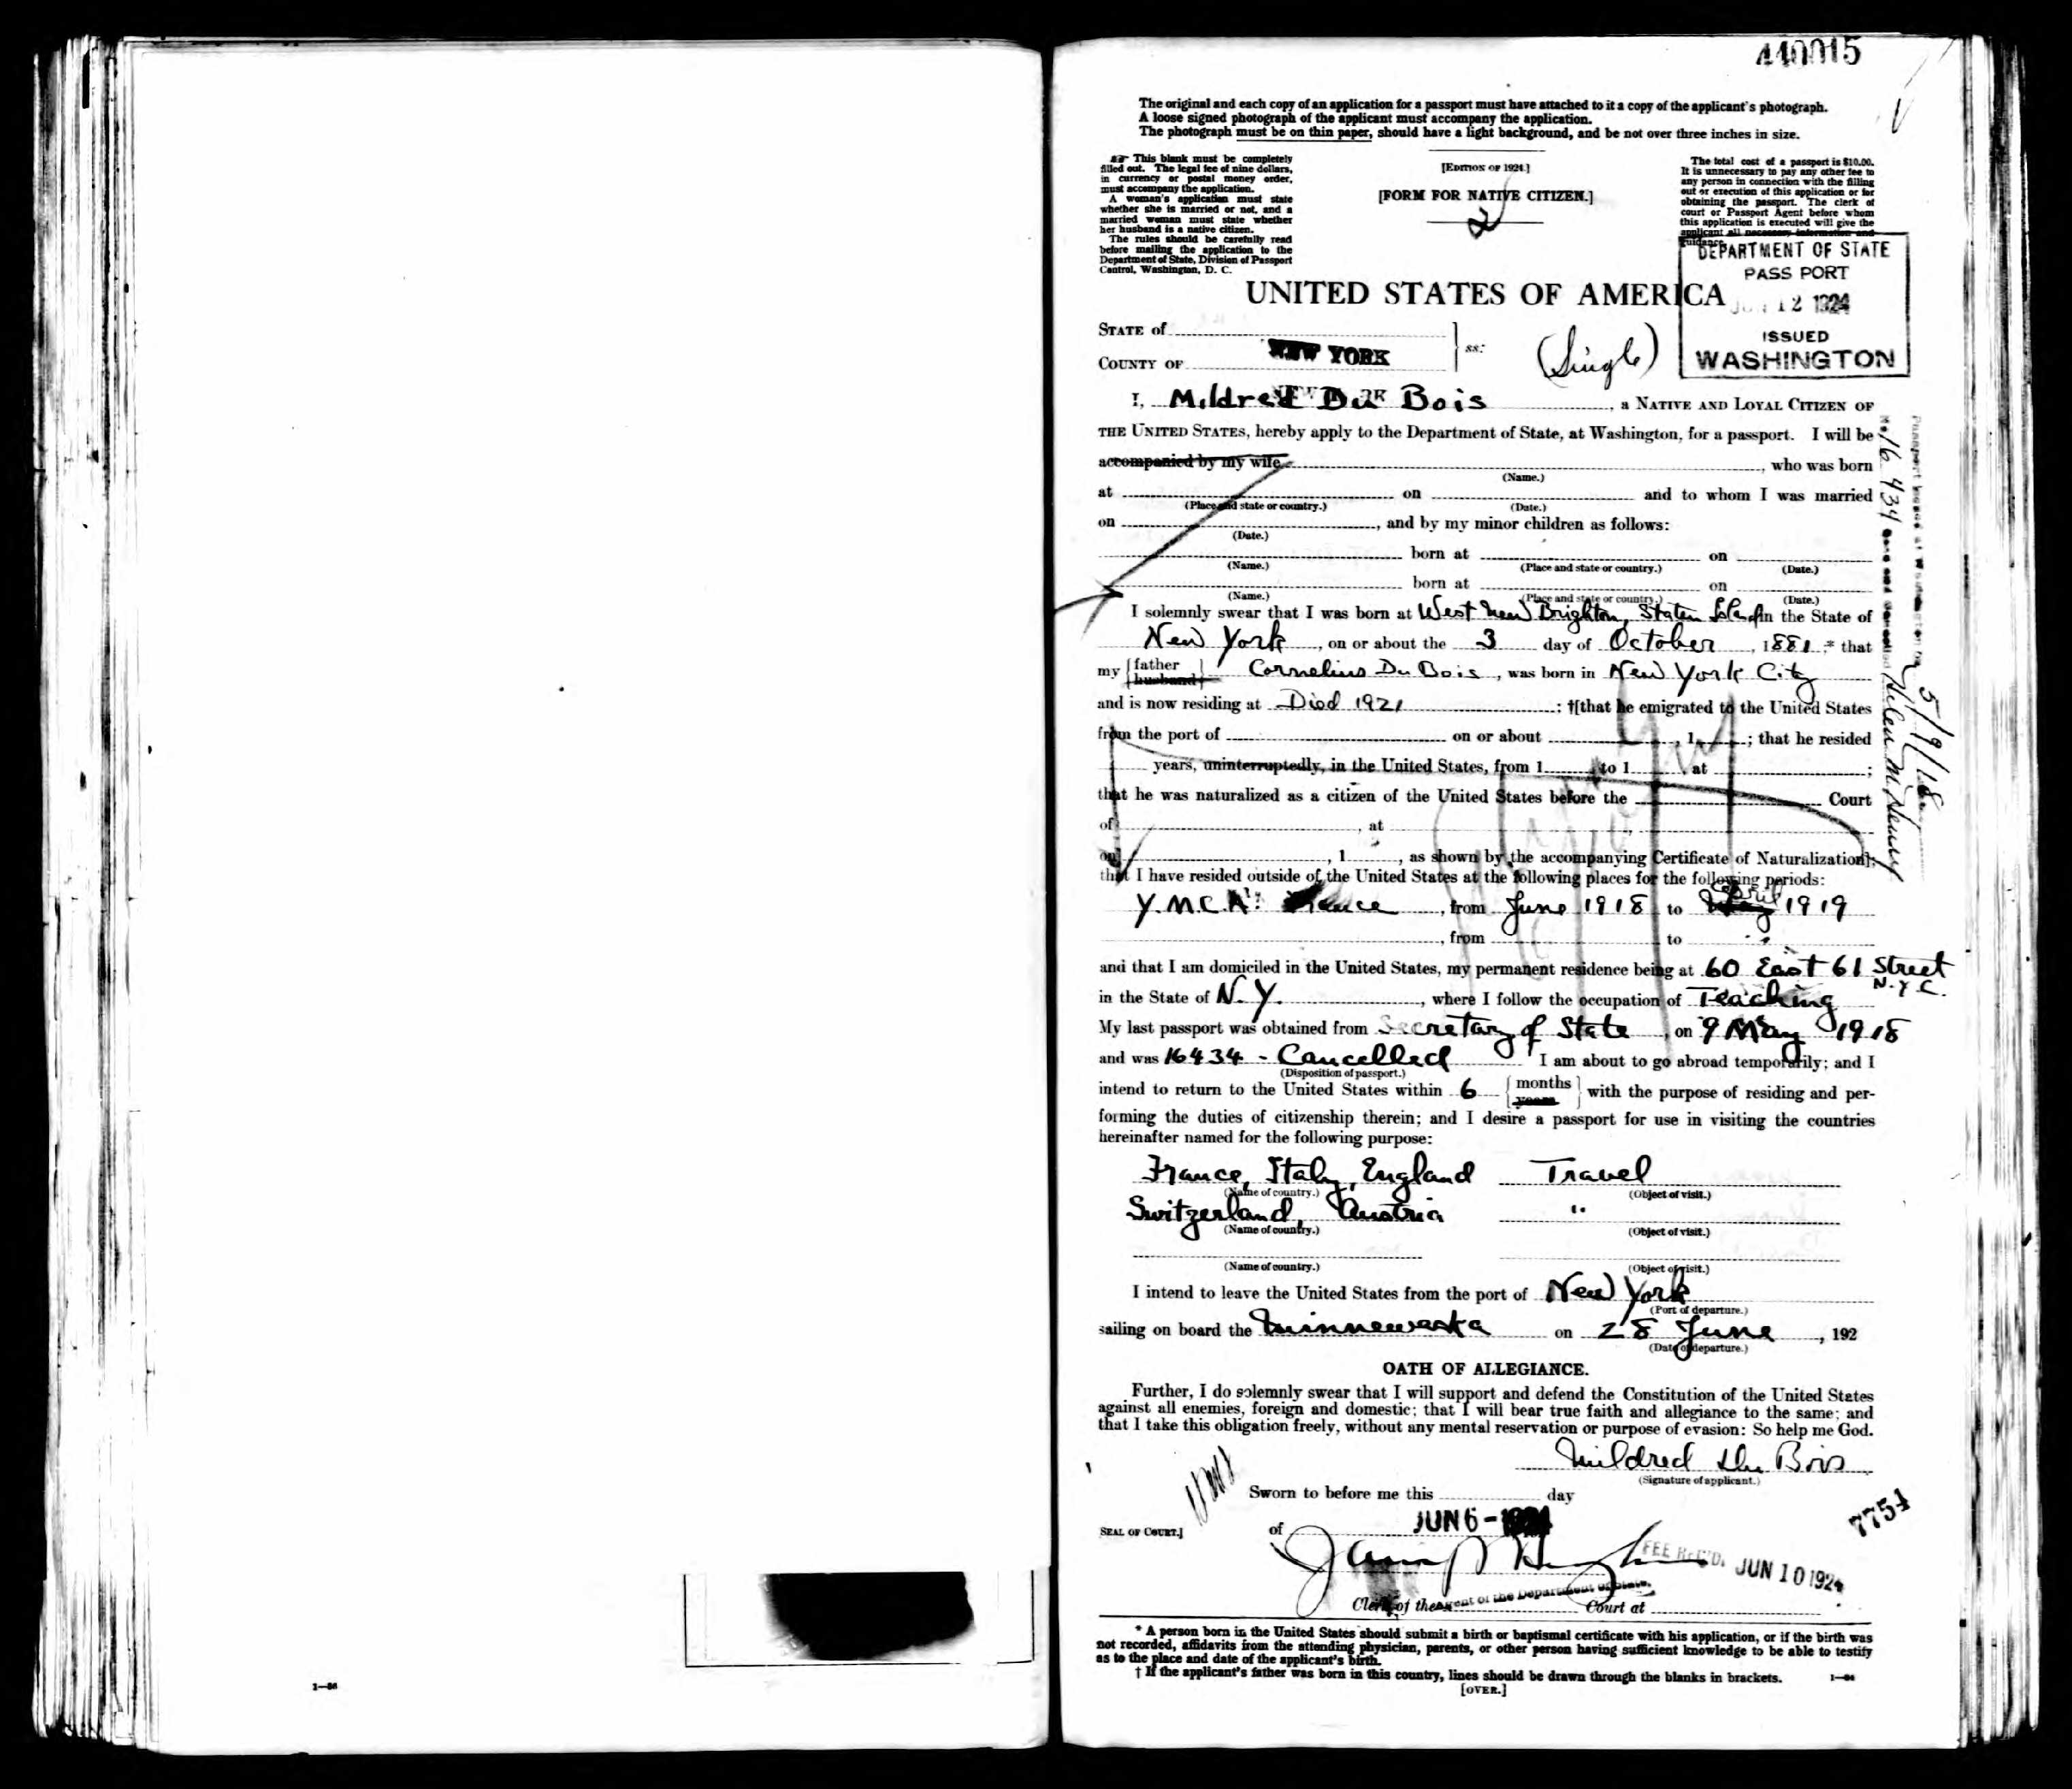 440015
The original and each copy of an application for a passport must have attached to it a copy of the applicant's photograph.
A loose signed photograph of the applicant must accompany the application.
The photograph must be on thin paper, should have a light background, and be not over three inches in size.
This blank must be completely
filled out. The legal fee of nine dollars,
in currency or postal money order,
must accompany the application.
A woman's application must state
whether she is married or not, and a
married woman must state whether
her husband is a native citizen.
The rules should be carefully read
before mailing the application to the
Department of State, Division of Passport
Control, Washington, D. C.
[EDITION OF 1924.]
[FORM FOR NATIVE CITIZEN.]
2
The total cost of a passport is $10.00.
It is unnecessary to pay any other fee to
any person in connection with the filling
out or execution of this application or for
obtaining the passport. The clerk of
court or Passport Agent before whom
this application is executed will give the
applicant all necessary information and
guidance.
DEPARTMENT OF STATE
PASS PORT
12 1924
ISSUED
WASHINGTON
UNITED STATES OF AMERICA
STATE OF
COUNTY OF NEW YORK ss:
(Single)
I, Mildred Du Bois, a NATIVE AND LOYAL CITIZEN OF
THE UNITED STATES, hereby apply to the Department of State, at Washington, for a passport. I will be
accompanied by my wife, who was born
(Name.)
at on and to whom I was married
(Place and state or country.) (Date.)
on , and by my minor children as follows:
(Date.)
born at on
(Name.) (Place and state or country.) (Date.)
born at on
(Name.) (Place and state or country.) (Date.)
I solemnly swear that I was born at West New Brighton, Staten Island in the State of
New York, on or about the 3 day of October, 1881 * that
my {father husband} Cornelius Du Bois, was born in New York City
and is now residing at Died 1921; †[that he emigrated to the United States
from the port of on or about , 1 ; that he resided
years, uninterruptedly, in the United States, from 1 to 1 , at ;
that he was naturalized as a citizen of the United States before the Court
of , at
on , 1 , as shown by the accompanying Certificate of Naturalization];
that I have resided outside of the United States at the following places for the following periods:
Y.M.C.A. France, from June 1918 to April 1919
, from to
and that I am domiciled in the United States, my permanent residence being at 60 East 61 Street
N.Y.C.
in the State of N.Y., where I follow the occupation of Teaching
My last passport was obtained from Secretary of State, on 9 May 1918
and was 16434 - Cancelled I am about to go abroad temporarily; and I
(Disposition of passport.)
intend to return to the United States within 6 {months years} with the purpose of residing and per-
forming the duties of citizenship therein; and I desire a passport for use in visiting the countries
hereinafter named for the following purpose:
France, Italy, England Travel
(Name of country.) (Object of visit.)
Switzerland, Austria "
(Name of country.) (Object of visit.)
(Name of country.) (Object of visit.)
I intend to leave the United States from the port of New York
(Port of departure.)
sailing on board the Minnewaska on 28 June, 192
(Date of departure.)
OATH OF ALLEGIANCE.
Further, I do solemnly swear that I will support and defend the Constitution of the United States
against all enemies, foreign and domestic; that I will bear true faith and allegiance to the same; and
that I take this obligation freely, without any mental reservation or purpose of evasion: So help me God.
Mildred Du Bois
(Signature of applicant.)
Sworn to before me this day
SEAL OF COURT.]
of JUN 6 - 1924
FEE REC'D. JUN 10 1924
7754
Clerk of the Agent of the Department of State. Court at
* A person born in the United States should submit a birth or baptismal certificate with his application, or if the birth was
not recorded, affidavits from the attending physician, parents, or other person having sufficient knowledge to be able to testify
as to the place and date of the applicant's birth.
† If the applicant's father was born in this country, lines should be drawn through the blanks in brackets.
[OVER.]
No. 16434
5/9/18